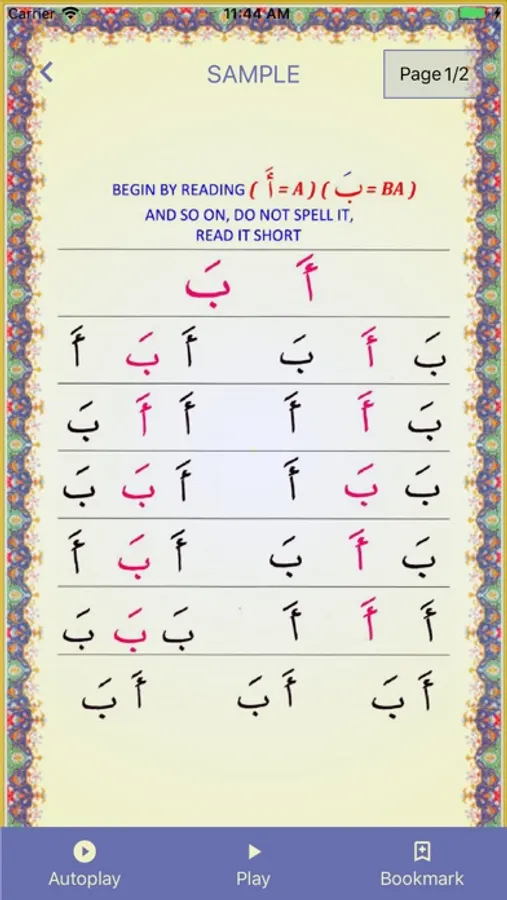 Carrier 11:44 AM
SAMPLE
Page 1/2
BEGIN BY READING ( أَ = A ) ( بَ = BA )
AND SO ON, DO NOT SPELL IT,
READ IT SHORT
أَ بَ
بَ أَ بَ أَ بَ أَ
بَ أَ أَ أَ أَ بَ
بَ بَ أَ أَ بَ بَ
بَ أَ بَ أَ بَ أَ
أَ أَ أَ بَ بَ بَ
أَ بَ أَ بَ أَ بَ
Autoplay Play Bookmark